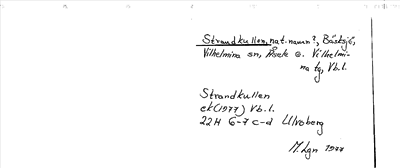 Strandkullen, nat.namn?, Bäsksjö,
Vilhelmina sn, Åsele o. Vilhelmi-
na tg, Vb.l.
Strandkullen
ek (1977) Vb.l.
22H 6-7 c-d Ulvoberg
M.Lgn 1977